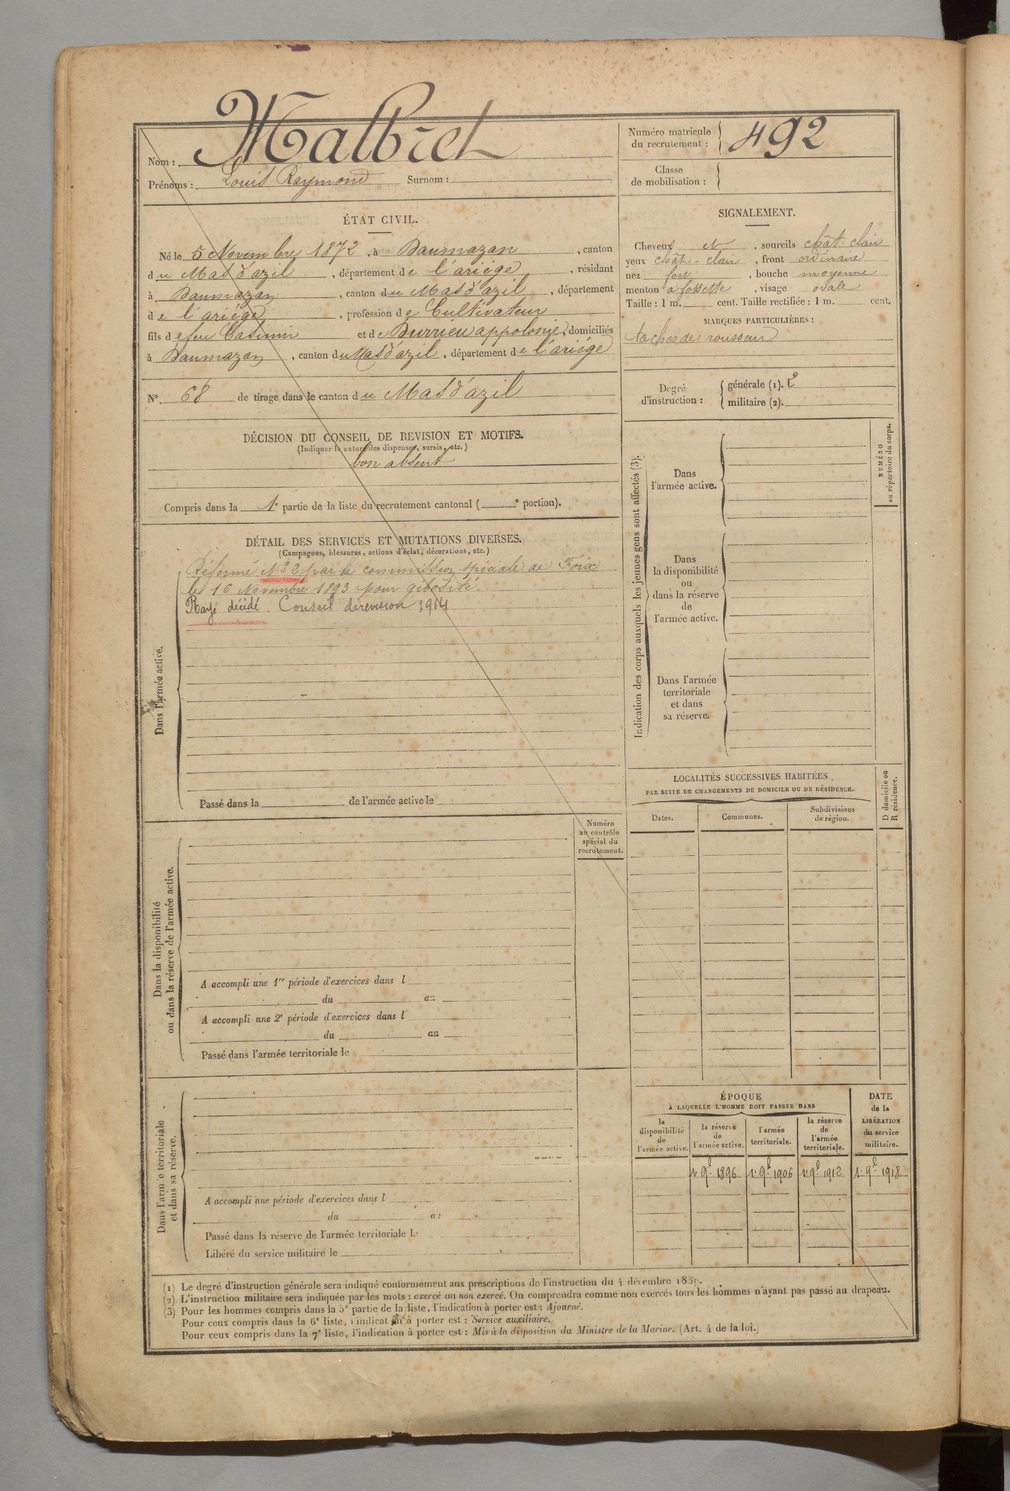 Nom : Malbret
Prénoms : Louis Raymond Surnom :
Numéro matricule du recrutement : 492
Classe de mobilisation :
ÉTAT CIVIL.
Né le 5 Novembre 1872, à Daumazan, canton
du Mas d'azil, département de l'ariége, résidant
à Daumazan, canton du Mas d'azil, département
de l'ariége, profession de Cultivateur
fils de feu Casimir et de Durrieu appolonie, domiciliés
à Daumazan, canton du Mas d'azil, département de l'ariége
N° 68 de tirage dans le canton du Mas d'azil
SIGNALEMENT.
Cheveux N, sourcils chât-clair
yeux chât-clair, front ordinaire
nez fort, bouche moyenne
menton à fossette, visage ovale
Taille : 1 m. cent. Taille rectifiée : 1 m. cent.
MARQUES PARTICULIÈRES :
taches de rousseur
Degré d'instruction :
générale (1).
militaire (2).
DÉCISION DU CONSEIL DE REVISION ET MOTIFS.
(Indiquer la nature des dispenses, sursis, etc.)
bon absent
Compris dans la 1e partie de la liste du recrutement cantonal ( e portion).
DÉTAIL DES SERVICES ET MUTATIONS DIVERSES.
(Campagnes, blessures, actions d'éclat, décorations, etc.)
Dans l'armée active.
Réformé N° 2 par la commission spéciale de Foix
le 16 Novembre 1893 pour gibosité.
Rayé décidé. Conseil de revision 1914
Passé dans la de l'armée active le
Indication des corps auxquels les jeunes gens sont affectés (3).
NUMÉRO au répertoire du corps.
Dans
l'armée active.
Dans
la disponibilité
ou
dans la réserve
de
l'armée active.
Dans l'armée
territoriale
et dans
sa réserve.
LOCALITÉS SUCCESSIVES HABITÉES
PAR SUITE DE CHANGEMENTS DE DOMICILE OU DE RÉSIDENCE.
Dates.
Communes.
Subdivisions de région.
D domicile ou R résidence.
Numéro
au contrôle
spécial du
recrutement.
Dans la disponibilité
ou dans la réserve de l'armée active.
A accompli une 1re période d'exercices dans l
du au
A accompli une 2e période d'exercices dans l
du au
Passé dans l'armée territoriale le
Dans l'armée territoriale
et dans sa réserve.
A accompli une période d'exercices dans l
du au
Passé dans la réserve de l'armée territoriale le
Libéré du service militaire le
ÉPOQUE
A LAQUELLE L'HOMME DOIT PASSER DANS
la disponibilité de l'armée active.
la réserve de l'armée active.
l'armée territoriale.
la réserve de l'armée territoriale.
DATE de la LIBÉRATION du service militaire.
1r 9e 1896 1r 9e 1906 1r 9e 1912 1r 9e 1918
(1) Le degré d'instruction générale sera indiqué conformément aux prescriptions de l'instruction du 4 décembre 1889.
(2) L'instruction militaire sera indiquée par les mots : exercé ou non exercé. On comprendra comme non exercés tous les hommes n'ayant pas passé au drapeau.
(3) Pour les hommes compris dans la 5e partie de la liste, l'indication à porter est : Ajourné.
Pour ceux compris dans la 6e liste, l'indication à porter est : Service auxiliaire.
Pour ceux compris dans la 7e liste, l'indication à porter est : Mis à la disposition du Ministre de la Marine. (Art. 4 de la loi.)